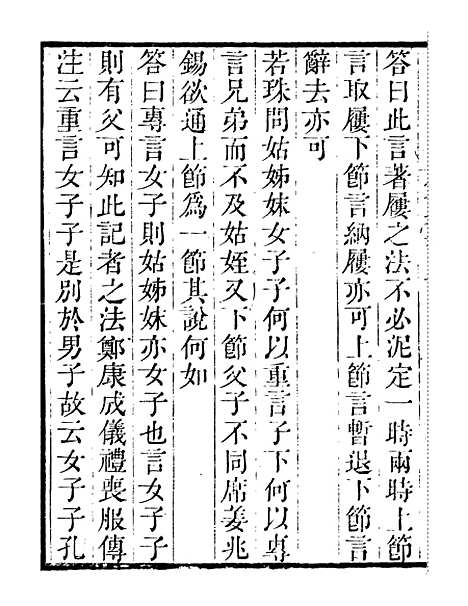 答曰此言著屨之法不必泥定一時兩時上節
言取屨下節言納屨亦可上節言暫退下節言
辭去亦可
若珠問姑姊妹女子子何以重言子下何以專
言兄弟而不及姑姪又下節父子不同席姜兆
錫欲通上節爲一節其說何如
答曰專言女子則姑姊妹亦女子也言女子子
則有父可知此記者之法鄭康成儀禮喪服傳
注云重言女子子是別於男子故云女子子孔